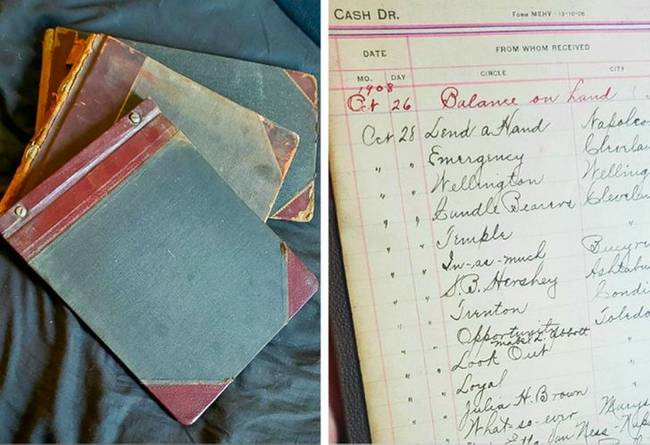 CASH DR. FORM MEHV-12-10-06
DATE FROM WHOM RECEIVED
MO. DAY CIRCLE CITY
1908
Oct 26 Balance on hand
Oct 28 Lend a Hand Napoleo
" " Emergency Clevelan
" " Wellington Welling
" " Candle Bearers Clevela
" " Temple "
" " In-as-much Bucyru
" " S.B. Hershey Ashtabu
" " Trenton Condi
" " Opportunity Toledo
" " Look Out "
" " Loyal "
" " Julia H. Brown "
What so-ever Marys
Van Ness- Nap